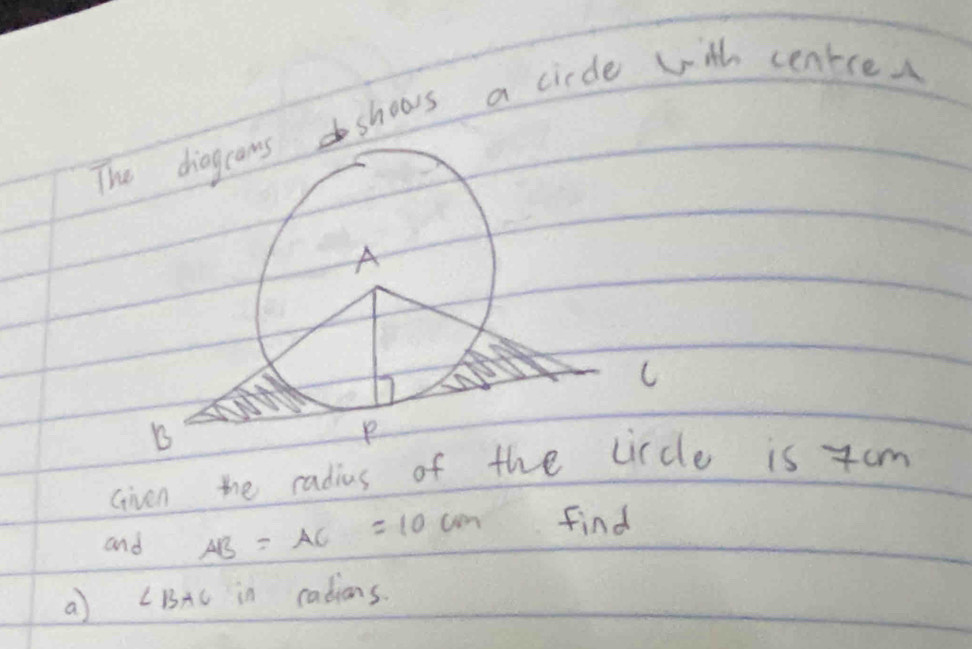 The diagrams shows a circle with centre A
A
B
P
C
Given the radius of the circle is 7cm
and AB = AC = 10 cm find
a) ∠BAC in radians.